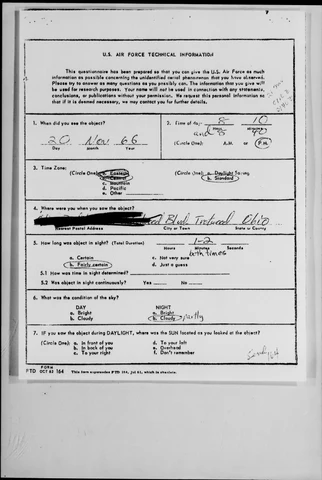 U.S. AIR FORCE TECHNICAL INFORMATION
This questionnaire has been prepared so that you can give the U.S. Air Force as much
information as possible concerning the unidentified aerial phenomenon that you have observed.
Please try to answer as many questions as you possibly can. The information that you give will
be used for research purposes. Your name will not be used in connection with any statements,
conclusions, or publications without your permission. We request this personal information so
that if it is deemed necessary, we may contact you for further details.
1. When did you see the object?
20 Nov 66
Day Month Year
2. Time of day: 8 10
Minutes
and 8 40
(Circle One): A.M. or P.M.
3. Time Zone:
(Circle One): a. Eastern
b. Central
c. Mountain
d. Pacific
e. Other
(Circle One): a. Daylight Saving
b. Standard
4. Where were you when you saw the object?
Blvd. Trotwood Ohio
Nearest Postal Address City or Town State or County
5. How long was object in sight? (Total Duration) 1-2
Hours Minutes Seconds
both times
a. Certain c. Not very sure
b. Fairly certain d. Just a guess
5.1 How was time in sight determined?
5.2 Was object in sight continuously? Yes No
6. What was the condition of the sky?
DAY NIGHT
a. Bright a. Bright
b. Cloudy b. Cloudy partly
7. IF you saw the object during DAYLIGHT, where was the SUN located as you looked at the object?
(Circle One): a. In front of you d. To your left
b. In back of you e. Overhead
c. To your right f. Don't remember
FORM
FTD OCT 62 164 This form supersedes FTD 164, Jul 61, which is obsolete.